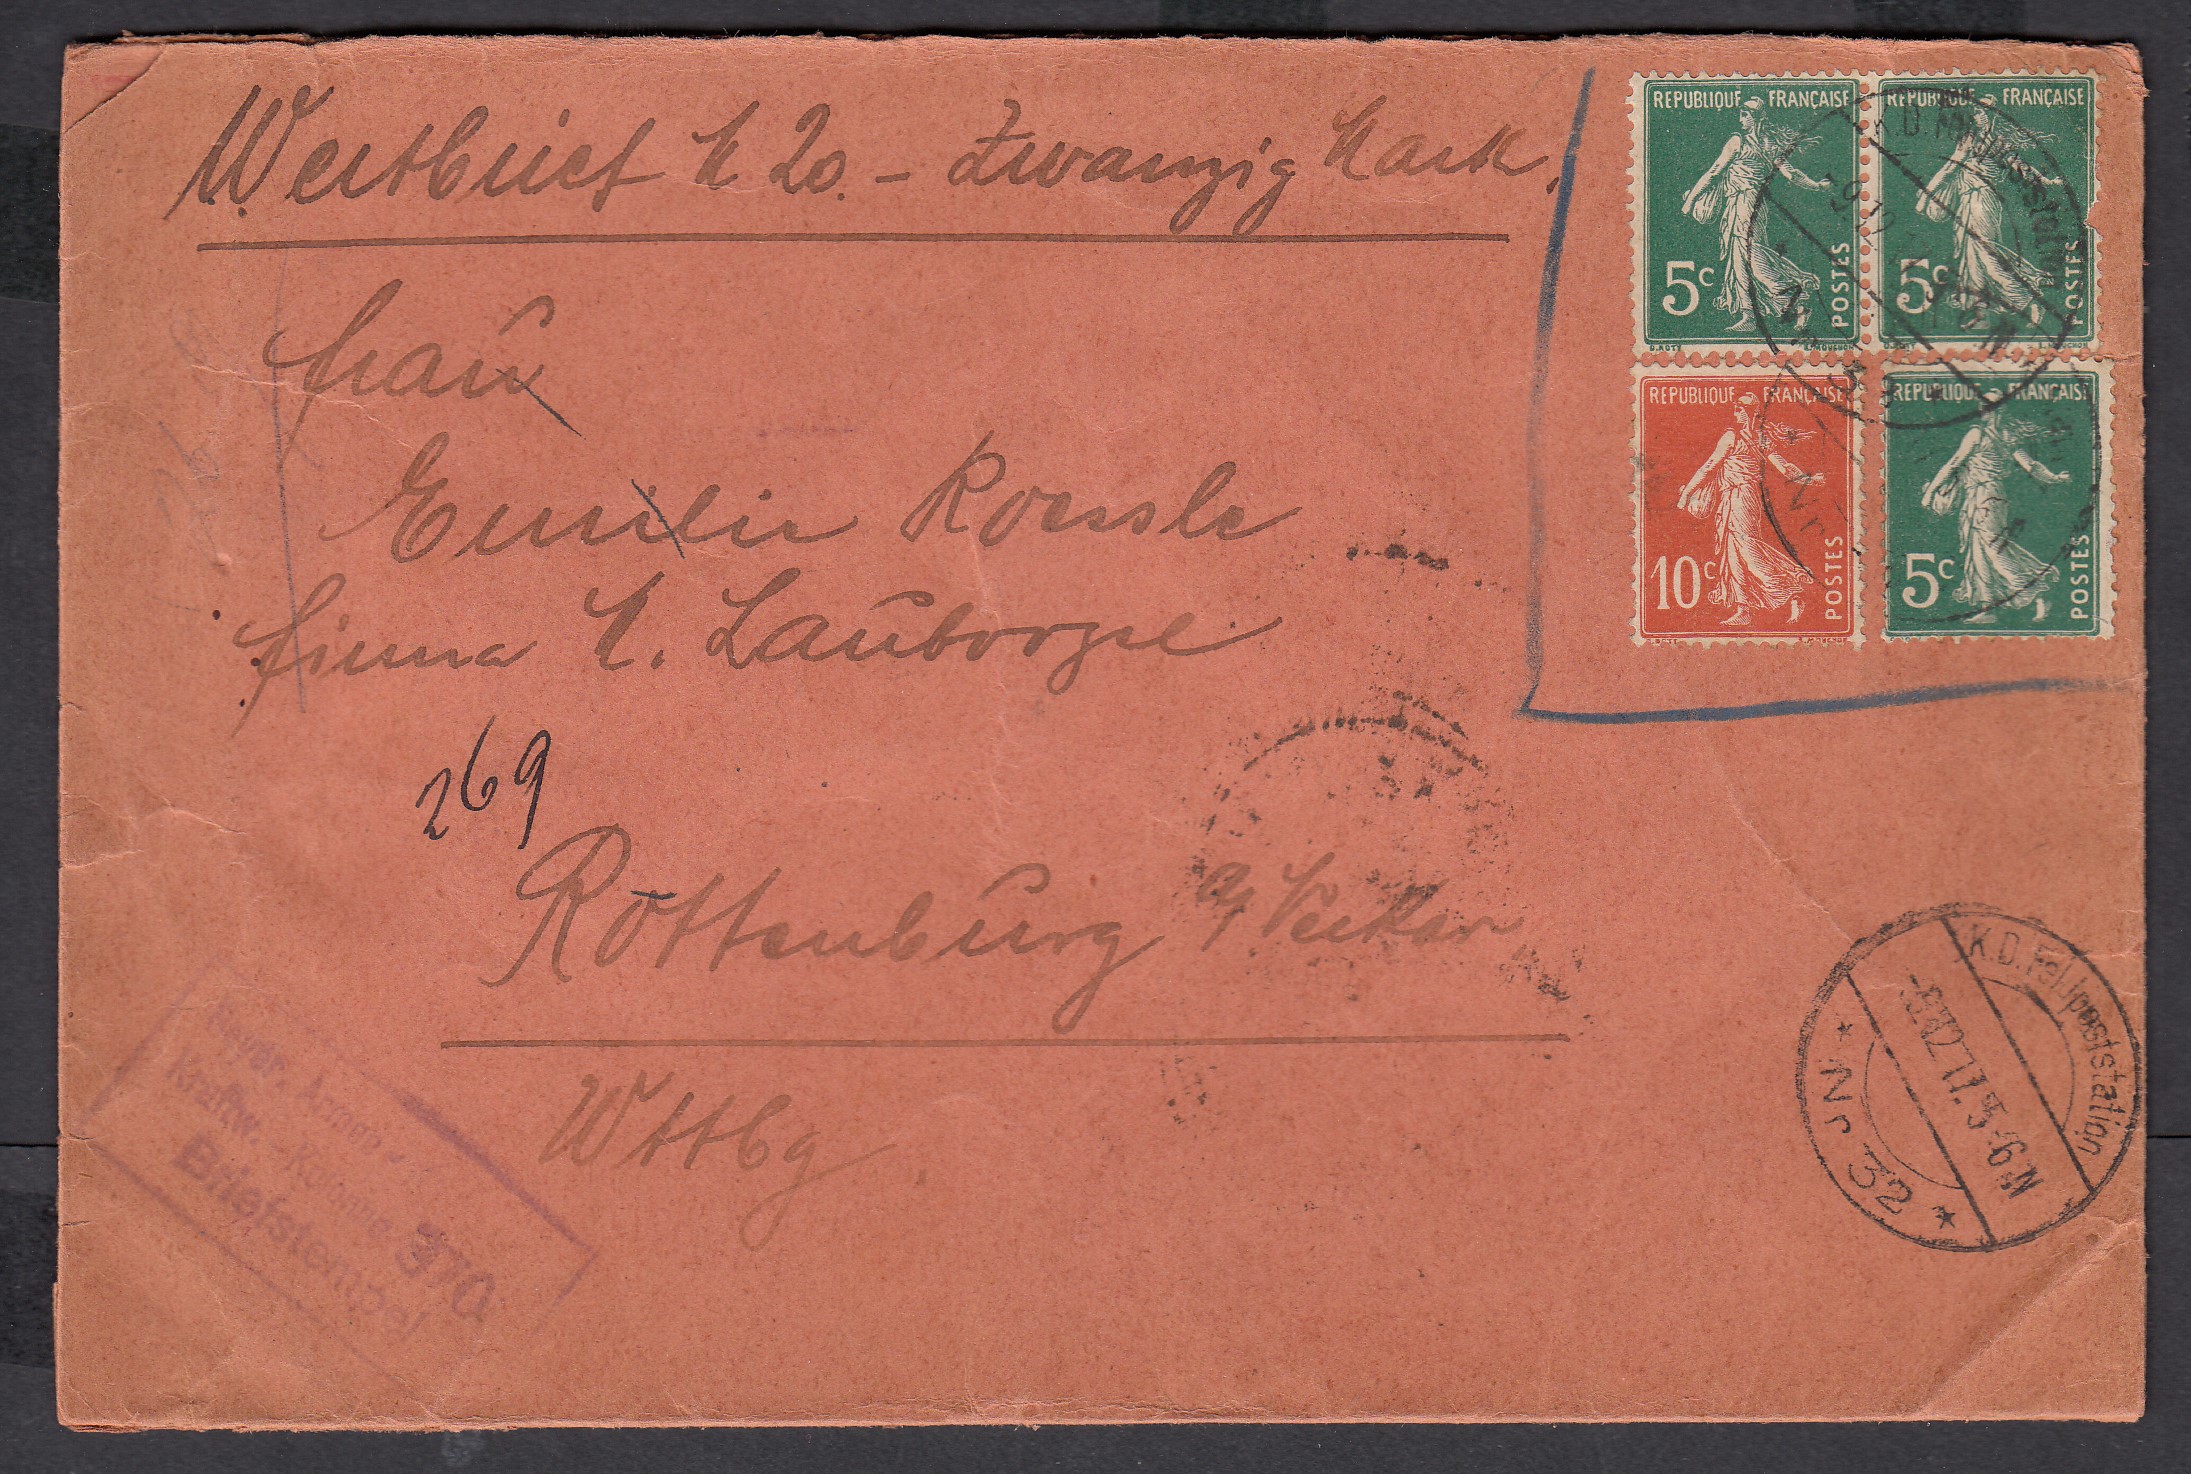 Wertbrief M 20.- Zwanzig Mark.
Frau
Emilie Roessle
Firma M. Lauborgie
269
Rottenburg a/Neckar
Wttbg.
REPUBLIQUE FRANÇAISE
5c
POSTES
REPUBLIQUE FRANÇAISE
5c
POSTES
REPUBLIQUE FRANÇAISE
10c
POSTES
REPUBLIQUE FRANÇAISE
5c
POSTES
K.D. Feldpoststation
Nr. 32
K.D. Feldpoststation
-9.12.17. 5-6.N.
* Nr. 32 *
Bayer. Armee-
Kraftw.-Kolonne 370
Briefstempel